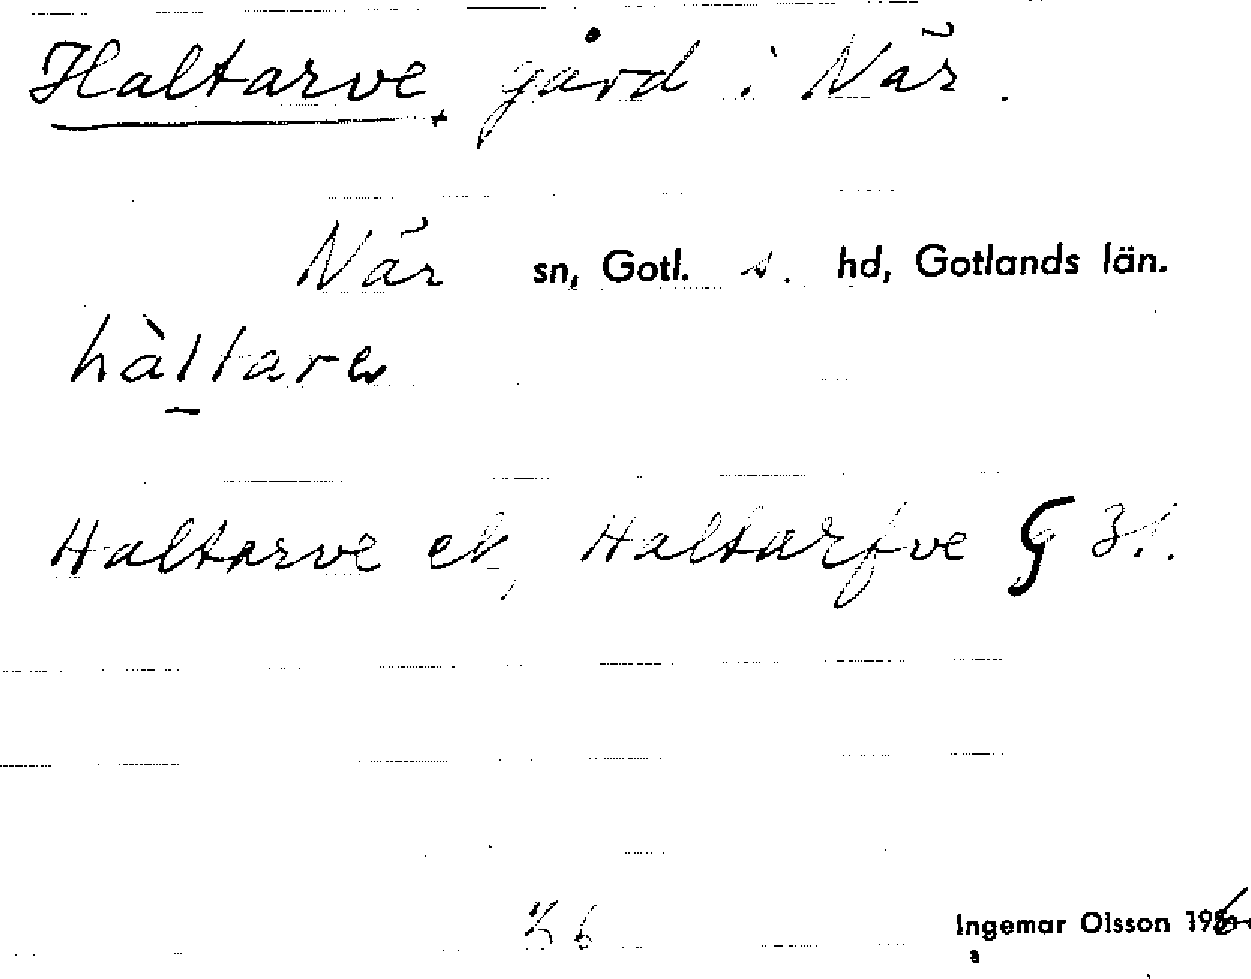 Haltarve, gård i När.
När sn, Gotl. s. hd, Gotlands län.
hàltare
Haltarve ek, Haltarfve G 31.
Ingemar Olsson 196